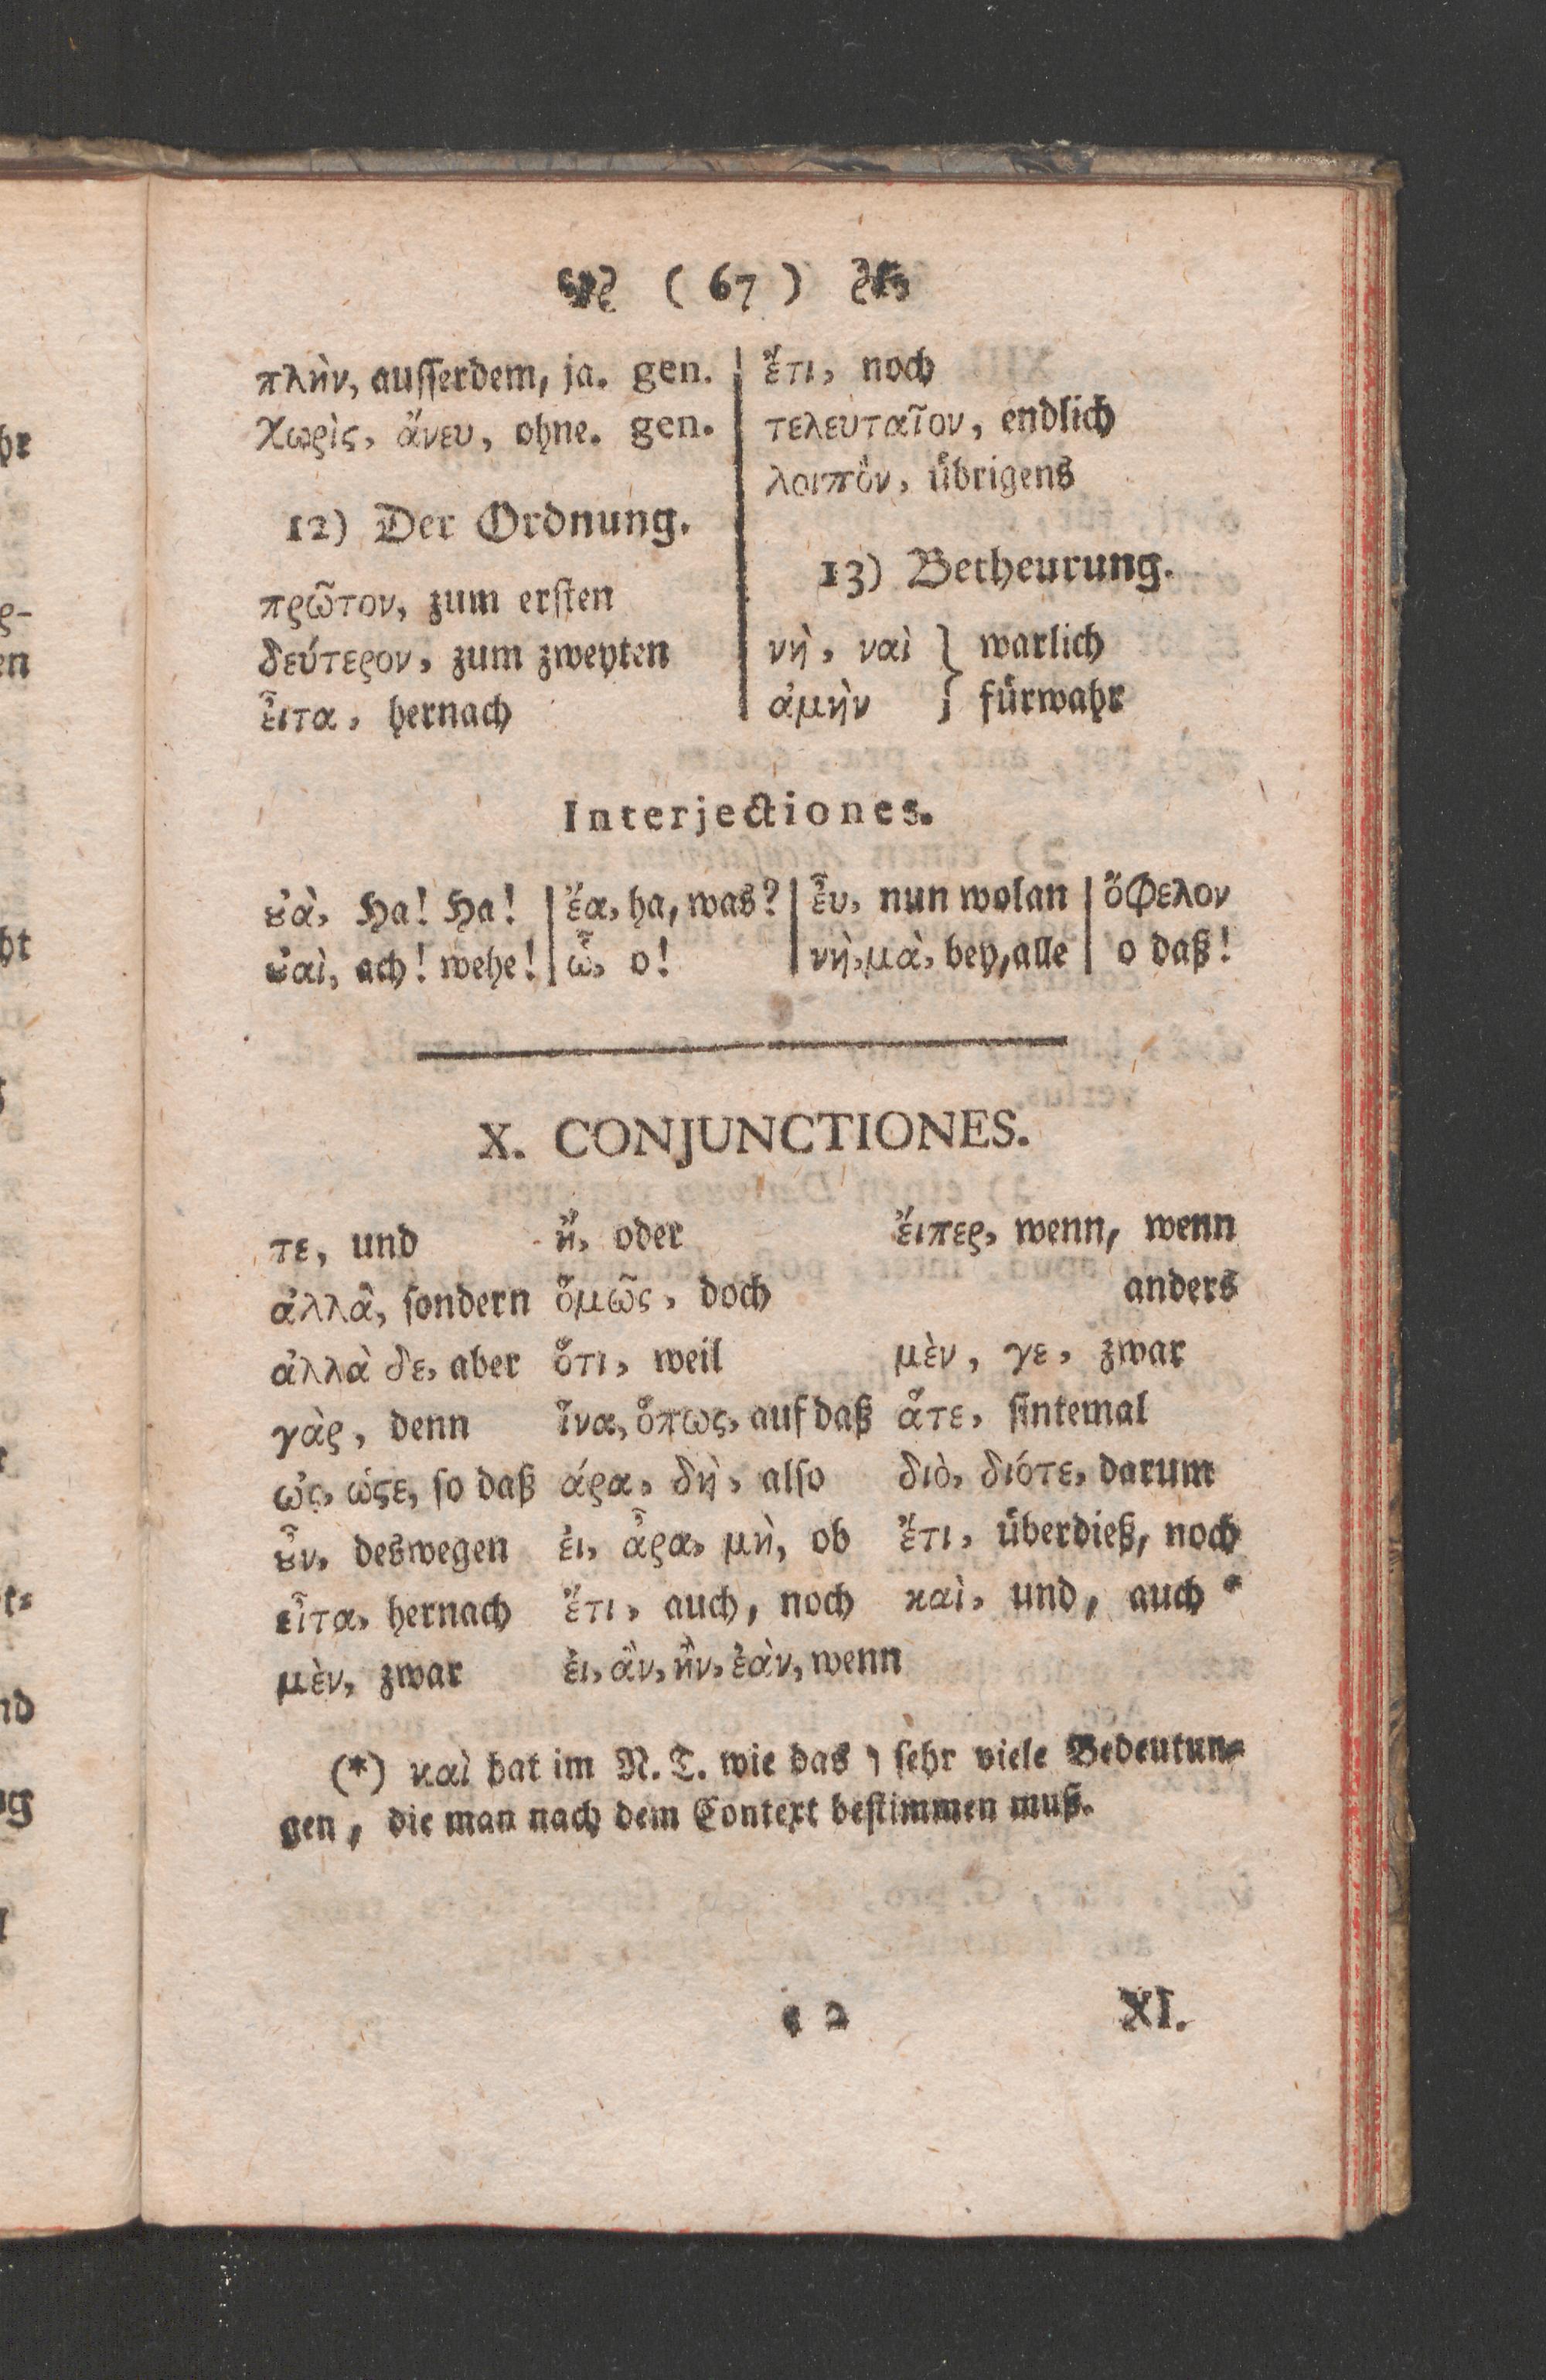 ( 67 )
πλὴν, ausserdem, ja. gen.
χωρὶς, ἄνευ, ohne. gen.
12) Der Ordnung.
πρῶτον, zum ersten
δεύτερον, zum zweyten
εἶτα, hernach
ἔτι, noch
τελευταῖον, endlich
λοιπὸν, übrigens
13) Betheurung.
νὴ, ναὶ } warlich
ἀμὴν } fürwahr
Interjectiones.
ȣ̓ὰ, Ha! Ha! | ἔα, ha, was? | εὖ, nun wolan | ὄφελον
ȣ̓αὶ, ach! wehe! | ὦ, o! | νὴ, μὰ, bey, alle | o daß!
X. CONJUNCTIONES.
τε, und ἢ, oder εἴπερ, wenn, wenn
anders
ἀλλὰ, sondern ὅμῶς, doch
ἀλλὰ δε, aber ὅτι, weil μὲν, γε, zwar
γὰρ, denn ἵνα, ὅπως, auf daß ἅτε, sintemal
ὡς, ὥϛε, so daß ἄρα, δὴ, also διὸ, διότε, darum
ȣ̓͂ν, deswegen εἰ, ἆρα, μὴ, ob ἔτι, überdieß, noch
εἶτα, hernach ἔτι, auch, noch καὶ, und, auch *
μὲν, zwar εἰ, ἂν, ἢν, ἐὰν, wenn
(*) καὶ hat im N. T. wie das ו sehr viele Bedeutun=
gen, die man nach dem Context bestimmen muß.
e 2 XI.